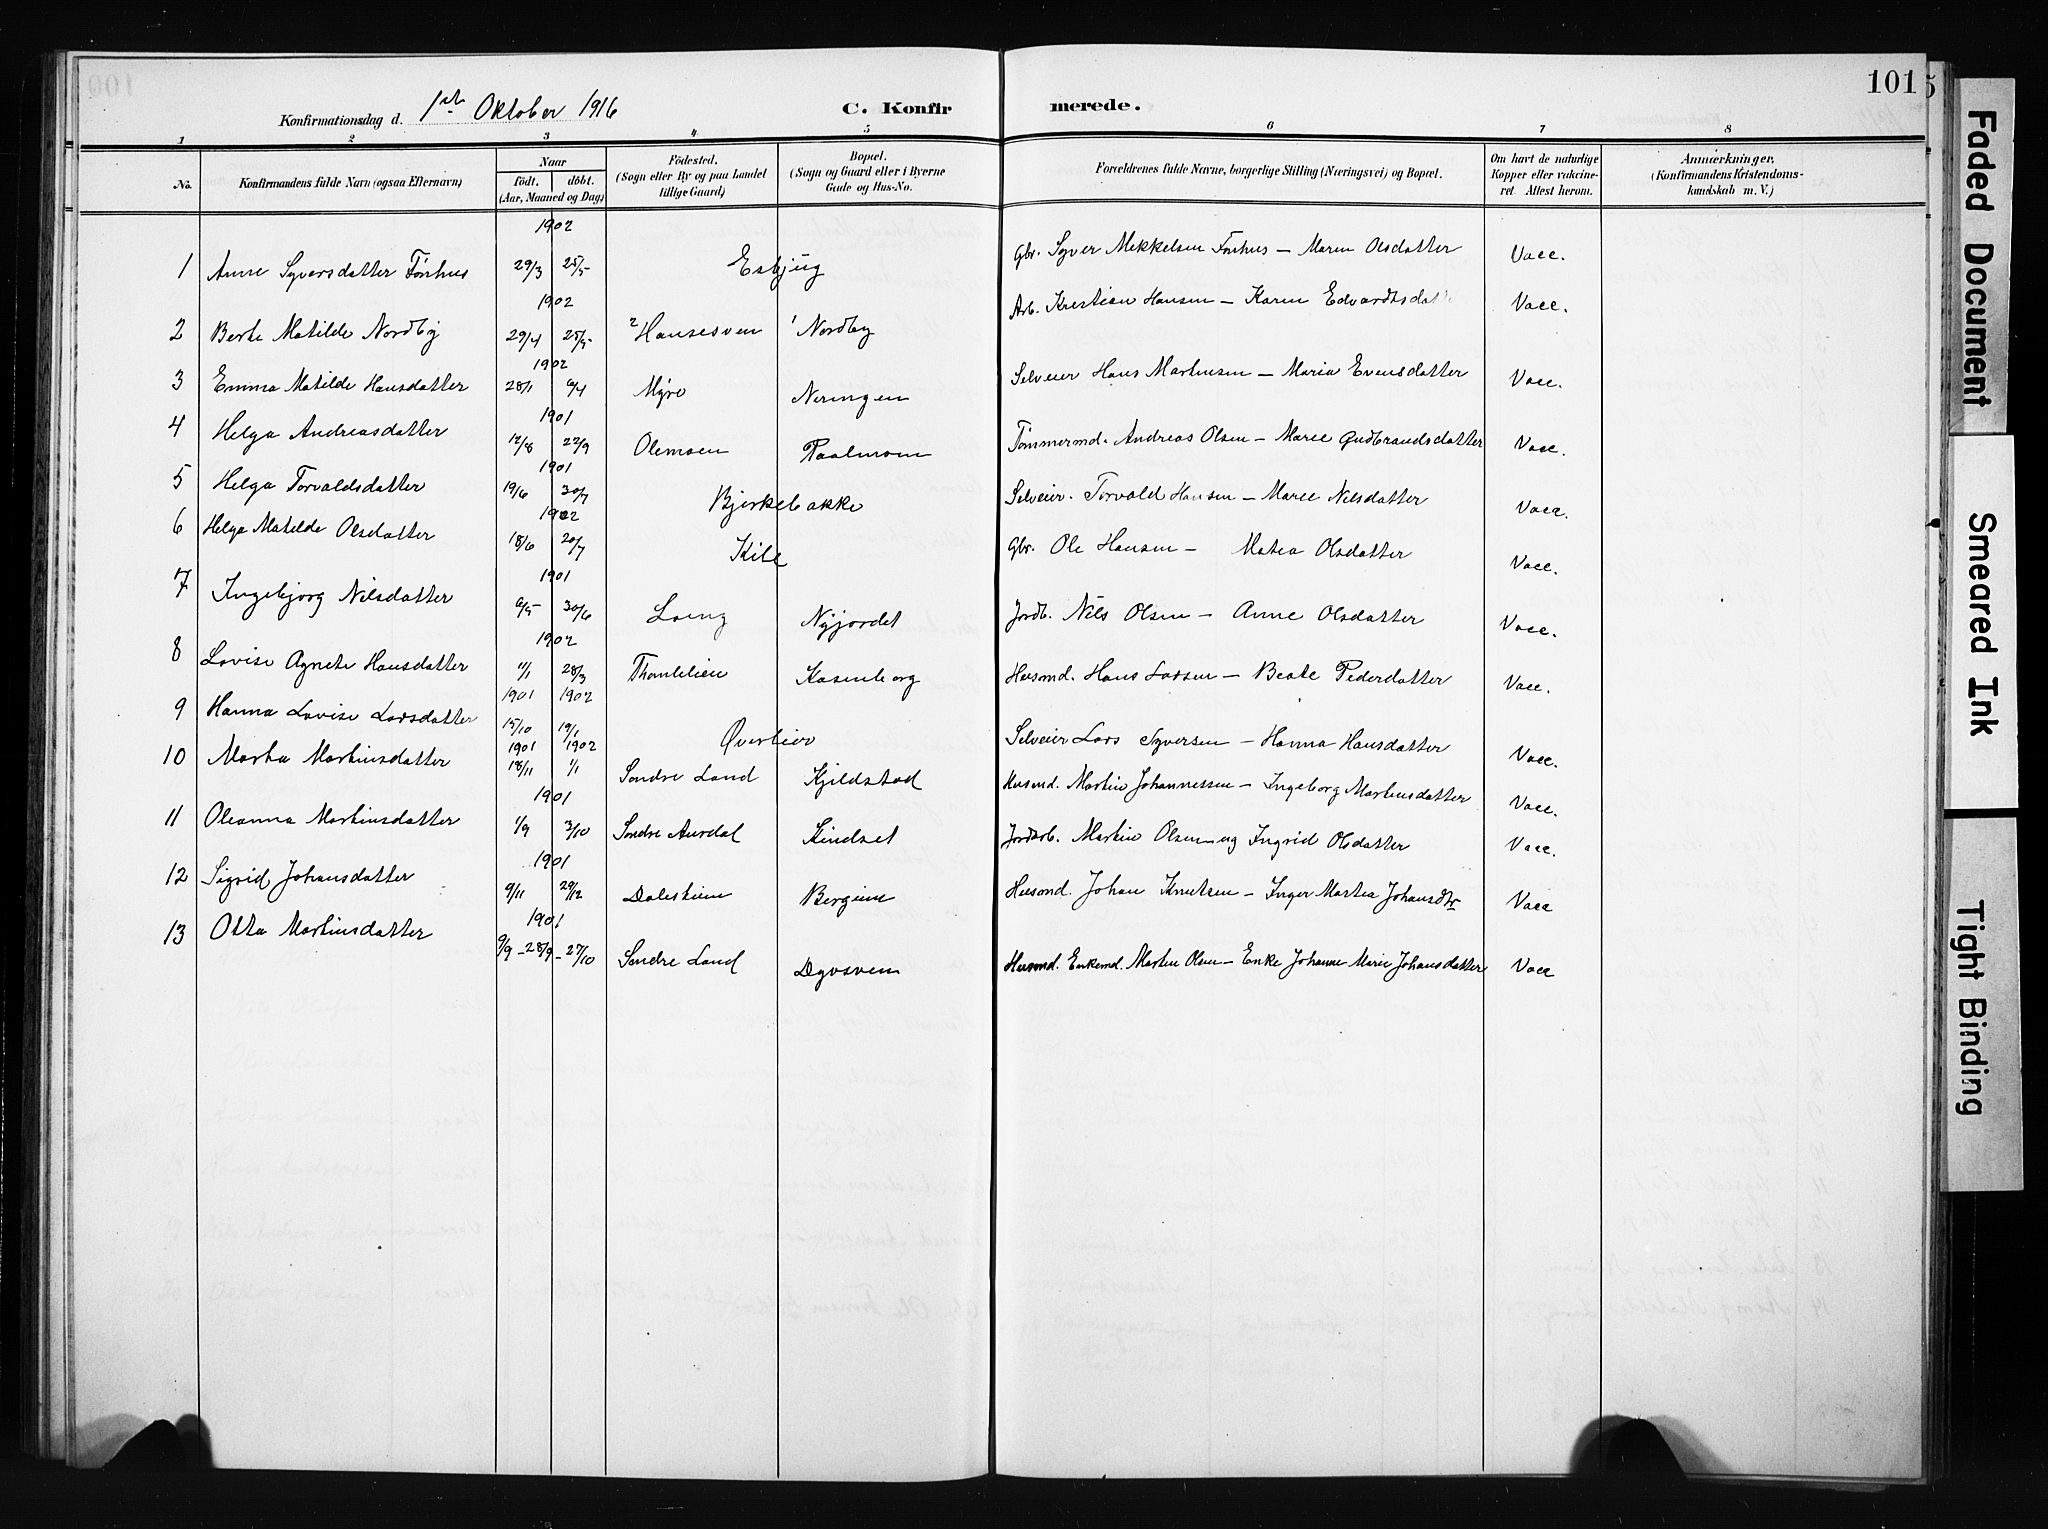 101
Konfirmationsdag d. 1st Oktober 1916 C. Konfirmerede.
1 2 3 4 5 6 7 8
No. Konfirmandens fulde Navn (ogsaa Efternavn) Naar født. døbt. (Aar, Maaned og Dag) Fødested. (Sogn eller By og paa Landet tillige Gaard) Bopæl. (Sogn og Gaard eller i Byerne Gade og Hus-No. Forældrenes fulde Navne, borgerlige Stilling (Næringsvei) og Bopæl. Om havt de naturlige Kopper eller vakcineret Attest herom. Anmærkninger. (Konfirmandens Kristendomskundskab m. V.)
1902
1 Anne Syversdatter Fønhus 29/3 25/5 Esbjug Gbr. Syver Mikkelsen Fønhus — Maren Olsdatter Vacc.
1902
2 Berte Matilde Nordby 29/4 25/5 Hansesven Nordby Arb. Kristian Hansen — Karen Edvardtsdatt Vacc.
1902
3 Emma Matilde Hansdatter 28/1 6/4 Myre Neringen Selveier Hans Martinsen — Maria Evensdatter Vacc.
1901
4 Helga Andreasdatter 12/8 22/9 Olemoen Paalmoen Tømmermd. Andreas Olsen — Maree Gudbrandsdatter Vacc.
1901
5 Helga Torvaldsdatter 19/6 30/7 Bjørkebakke Selveier. Torvald Hansen — Maree Nilsdatter Vacc.
1902
6 Helga Matilde Olsdatter 18/6 20/7 Kile Gbr. Ole Hansen — Matea Olsdatter Vacc.
1901
7 Ingebjørg Nilsdatter 6/5 30/6 Loeng Nyjordet Jordb. Nils Olsen — Anne Olsdatter Vacc.
1902
8 Lovise Agnete Hansdatter 1/1 28/3 Thonlilien Kasenborg Husmd. Hans Larsen — Beate Pedersdatter Vacc.
1901 1902
9 Hanna Lovise Larsdatter 15/10 19/1 Øverlier Selveier Lars Syversen — Hanna Hansdatter Vacc.
1901 1902
10 Marta Martinsdatter 18/11 1/1 Søndre Land Kjildstad Husmd. Martin Johannessen — Ingeborg Martinsdatter Vacc.
1901
11 Oleanna Martinsdatter 1/9 3/10 Søndre Aurdal Skindset Jordarb. Martin Olsen og Ingrid Olsdatter Vacc.
1901
12 Sigrid Johansdatter 9/11 29/12 Dalestuen Bergum Husmd. Johan Knutsen — Inger Martea Johansdtr Vacc
1901
13 Otta Martinsdatter 9/9 - 28/9 - 27/10 Søndre Land Dyvsven Husmd. Enkemd. Martin Olsen — Enke Johanne Marie Johansdatter Vacc
Faded Document
Smeared Ink
Tight Binding